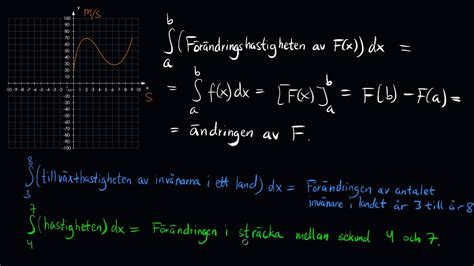 M/S
y
100
90
80
70
60
50
40
30
20
10
-10 -9 -8 -7 -6 -5 -4 -3 -2 -1 0 1 2 3 4 5 6 7 8 9 10
-10
-20
-30
-40
-50
-60
-70
-80
-90
-100
S
∫_a^b (Förändringshastigheten av F(x)) dx =
= ∫_a^b f(x) dx = [F(x)]_a^b = F(b) - F(a) =
= ändringen av F.
∫_3^8 (tillväxthastigheten av invånarna i ett land) dx = Förändringen av antalet
invånare i landet år 3 till år 8
∫_4^7 (hastigheten) dx = Förändringen i sträcka mellan sekund 4 och 7.